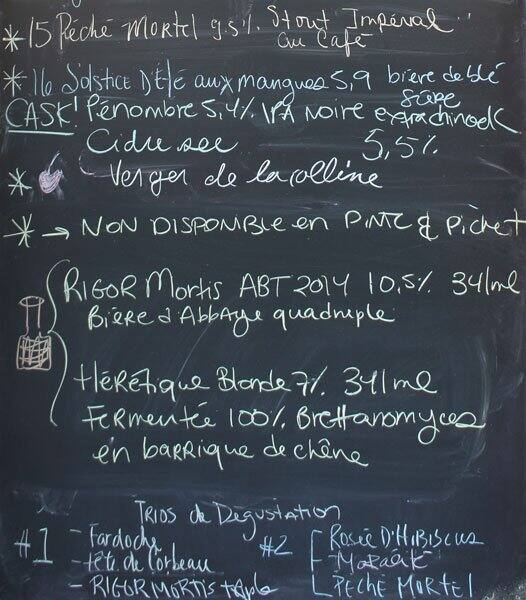 * 15 Péché Mortel 9.5% Stout Impérial
au Café
* 16 Solstice D'Été aux mangues 5,9 bière de blé
sûre
CASK! Pénombre 5,4% IPA Noire extra chinook
Cidre sec 5,5%
* Verger de la colline
* → NON DISPONIBLE en PiNTE & Pichet
RIGOR Mortis ABT 2014 10,5% 341ml
Bière d'Abbaye quadruple
Hérétique Blonde 7% 341ml
Fermentée 100% Brettanomyces
en barrique de chêne
Trios de Dégustation
#1 - Fardoche
- Tête de Corbeau
- RIGOR MORTIS
#2 Rosée D'Hibiscus
Moralité
PÉCHÉ MORTEL